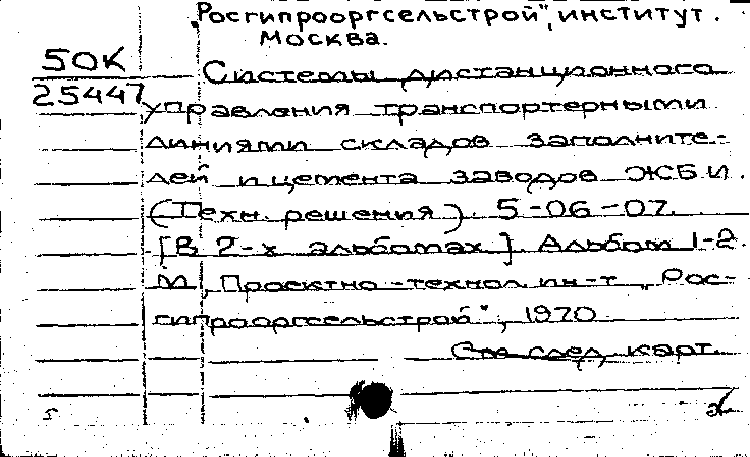 „Росгипрооргсельстрой", институт.
Москва.
50К
25447
Системы дистанционного
управления транспортерными
линиями складов заполните-
лей и цемента заводов ЖБИ.
(Техн. решения). 5-06-07.
[В 2-х альбомах]. Альбом 1-2
М., Проектно-технол. ин-т „Рос-
гипрооргсельстрой", 1970
См. след. карт.